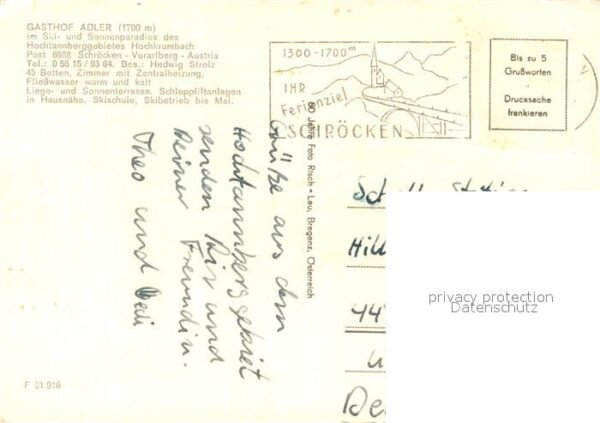 GASTHOF ADLER (1700 m)
im Ski- und Sonnenparadies des
Hochtannberggebietes Hochkrumbach
Post 6888 Schröcken - Vorarlberg - Austria
Tel.: 0 55 15 / 93 64. Bes.: Hedwig Strolz
45 Betten, Zimmer mit Zentralheizung,
Fließwasser warm und kalt
Liege- und Sonnenterrasse. Schleppliftanlagen
in Hausnähe. Skischule, Skibetrieb bis Mai.
1300-1700m
IHR
Ferienziel
SCHRÖCKEN
Bis zu 5
Grußworten
-
Drucksache
frankieren
80 Jahre Foto Risch - Lau, Bregenz, Österreich
Grüße aus dem
Hochtannberggebiet
senden Dir und
Deiner Freundin.
Theo und
44
privacy protection
Datenschutz
F 31.916